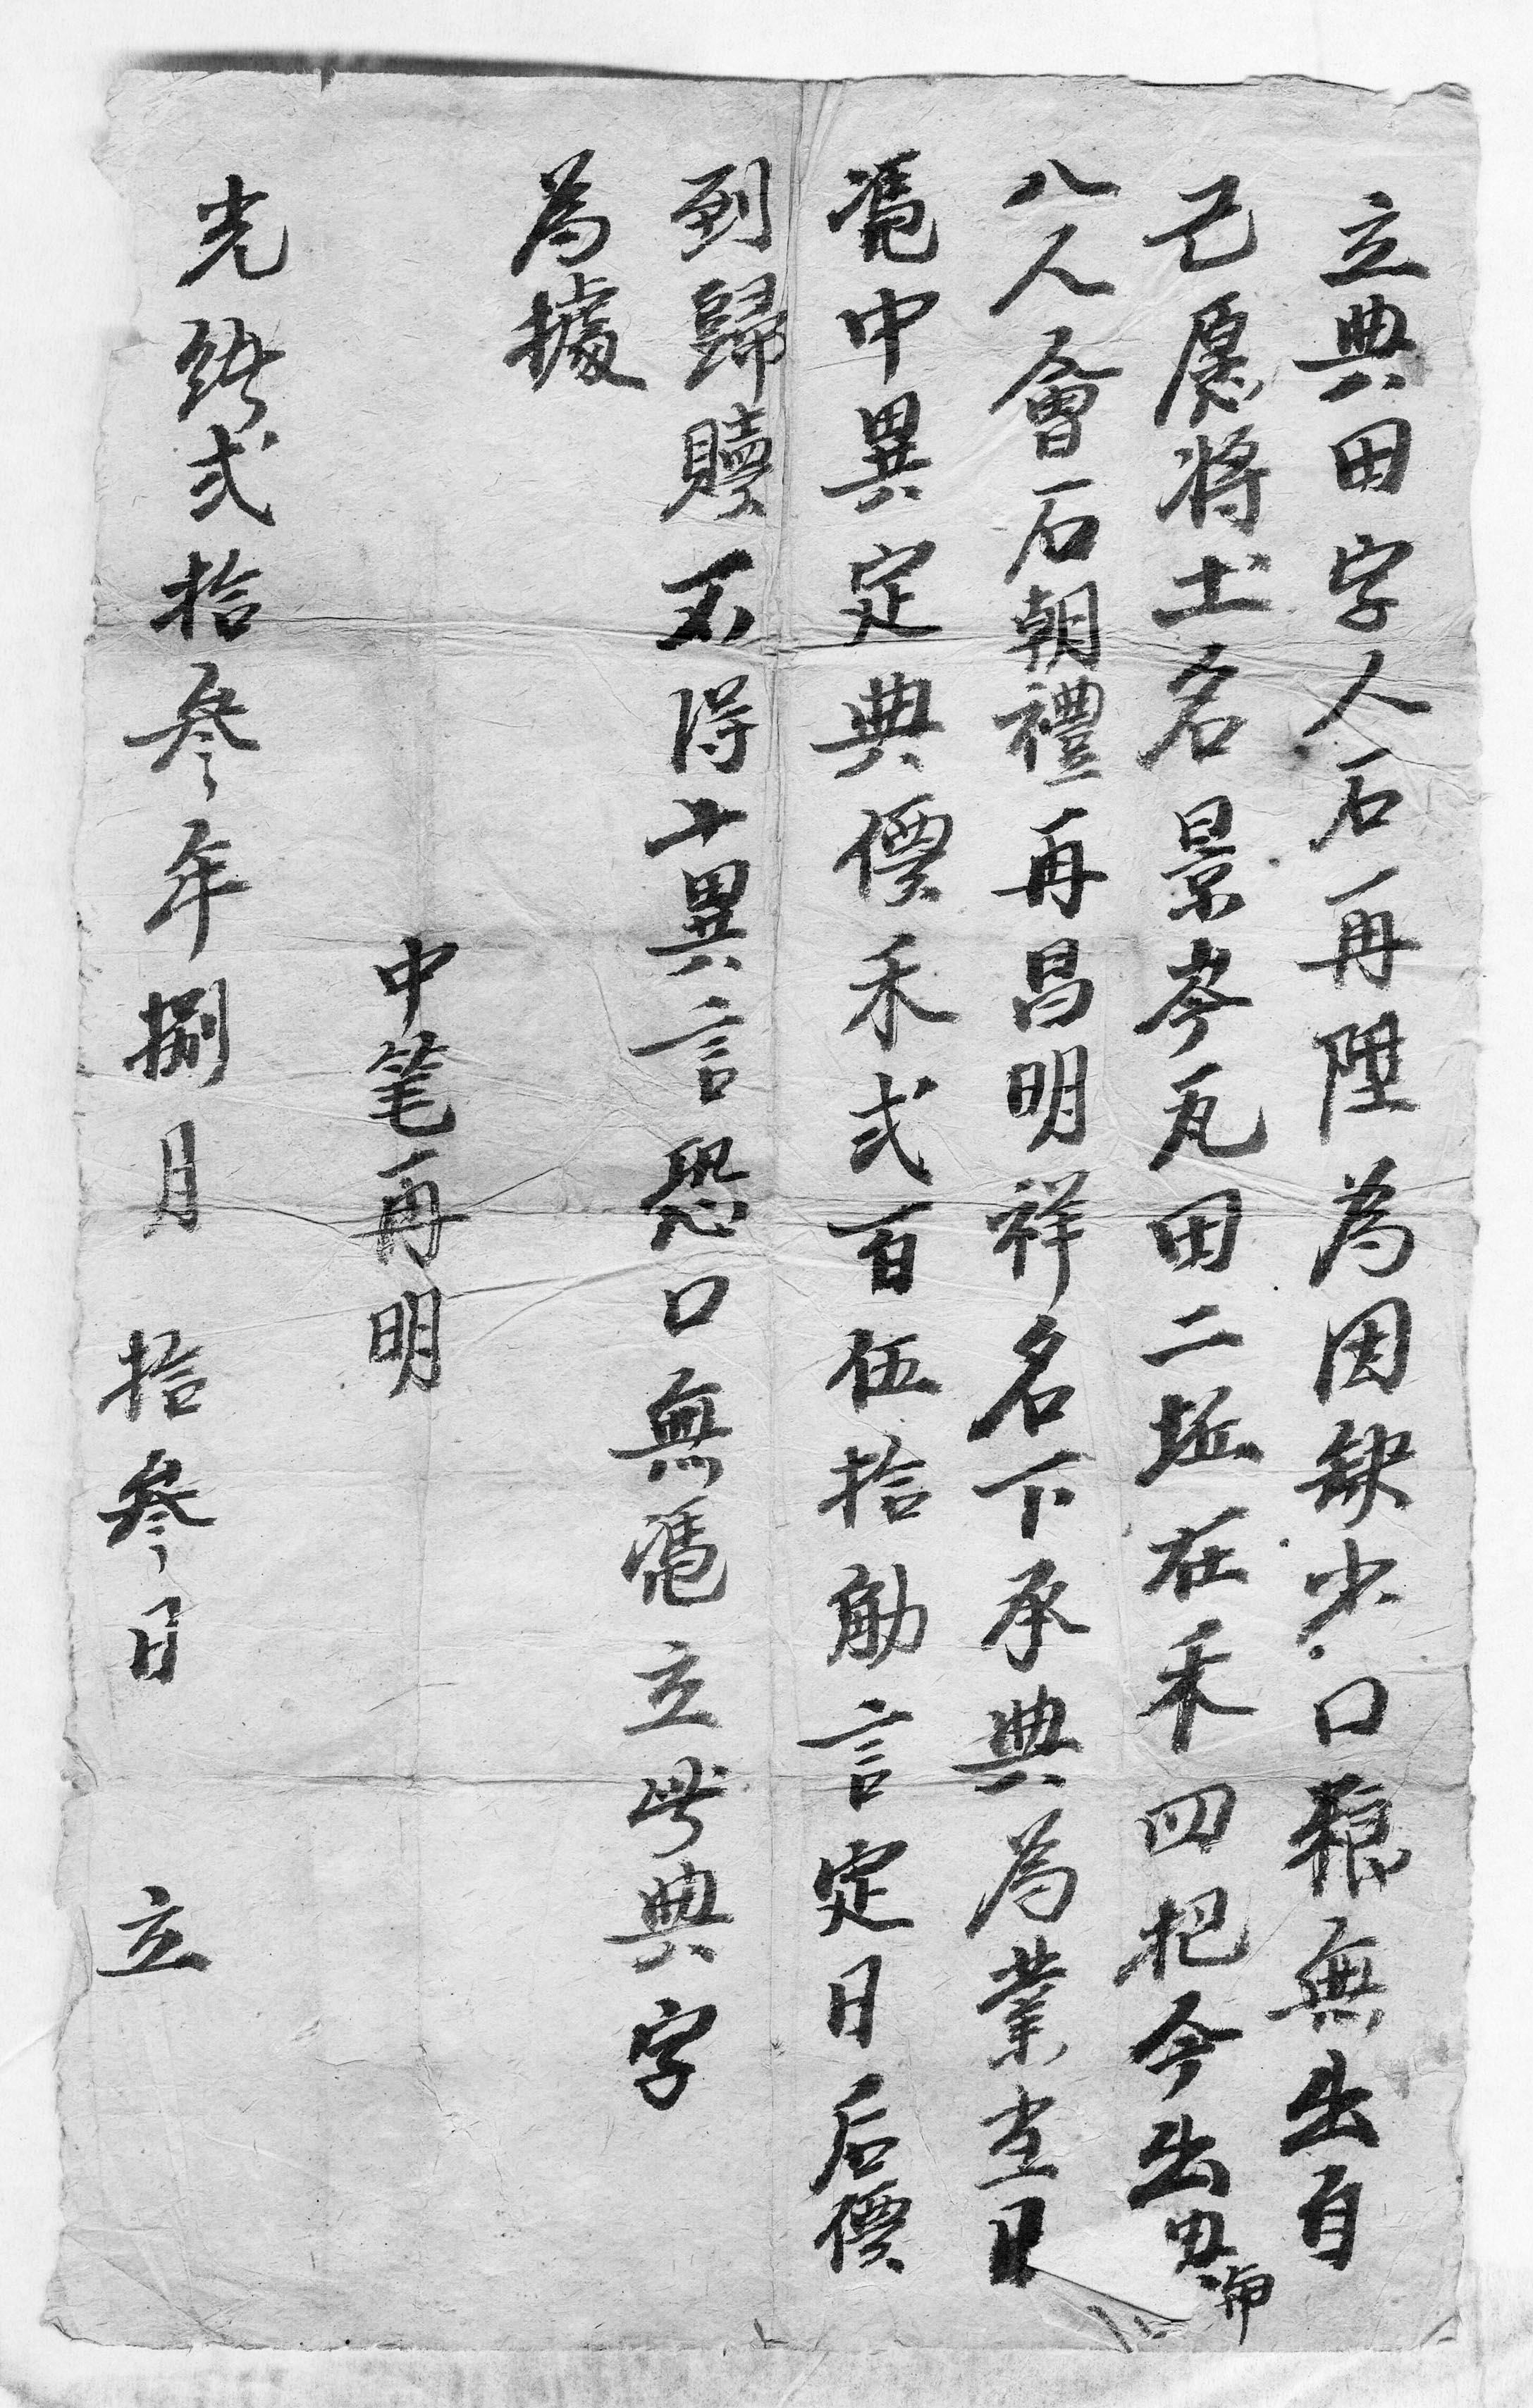 立典田字人石再陞為因缺少口粮無出自
己愿將土名景岑瓦田二坵在禾四把今出
八人會石朝禮再昌明祥名下承典為業当日
凴中異定典價禾弍百伍拾觔言定日后價
到歸贖不得異言恐口無凴立此典字
為據
中笔再明
光緒弍拾叄年捌月拾叄日立